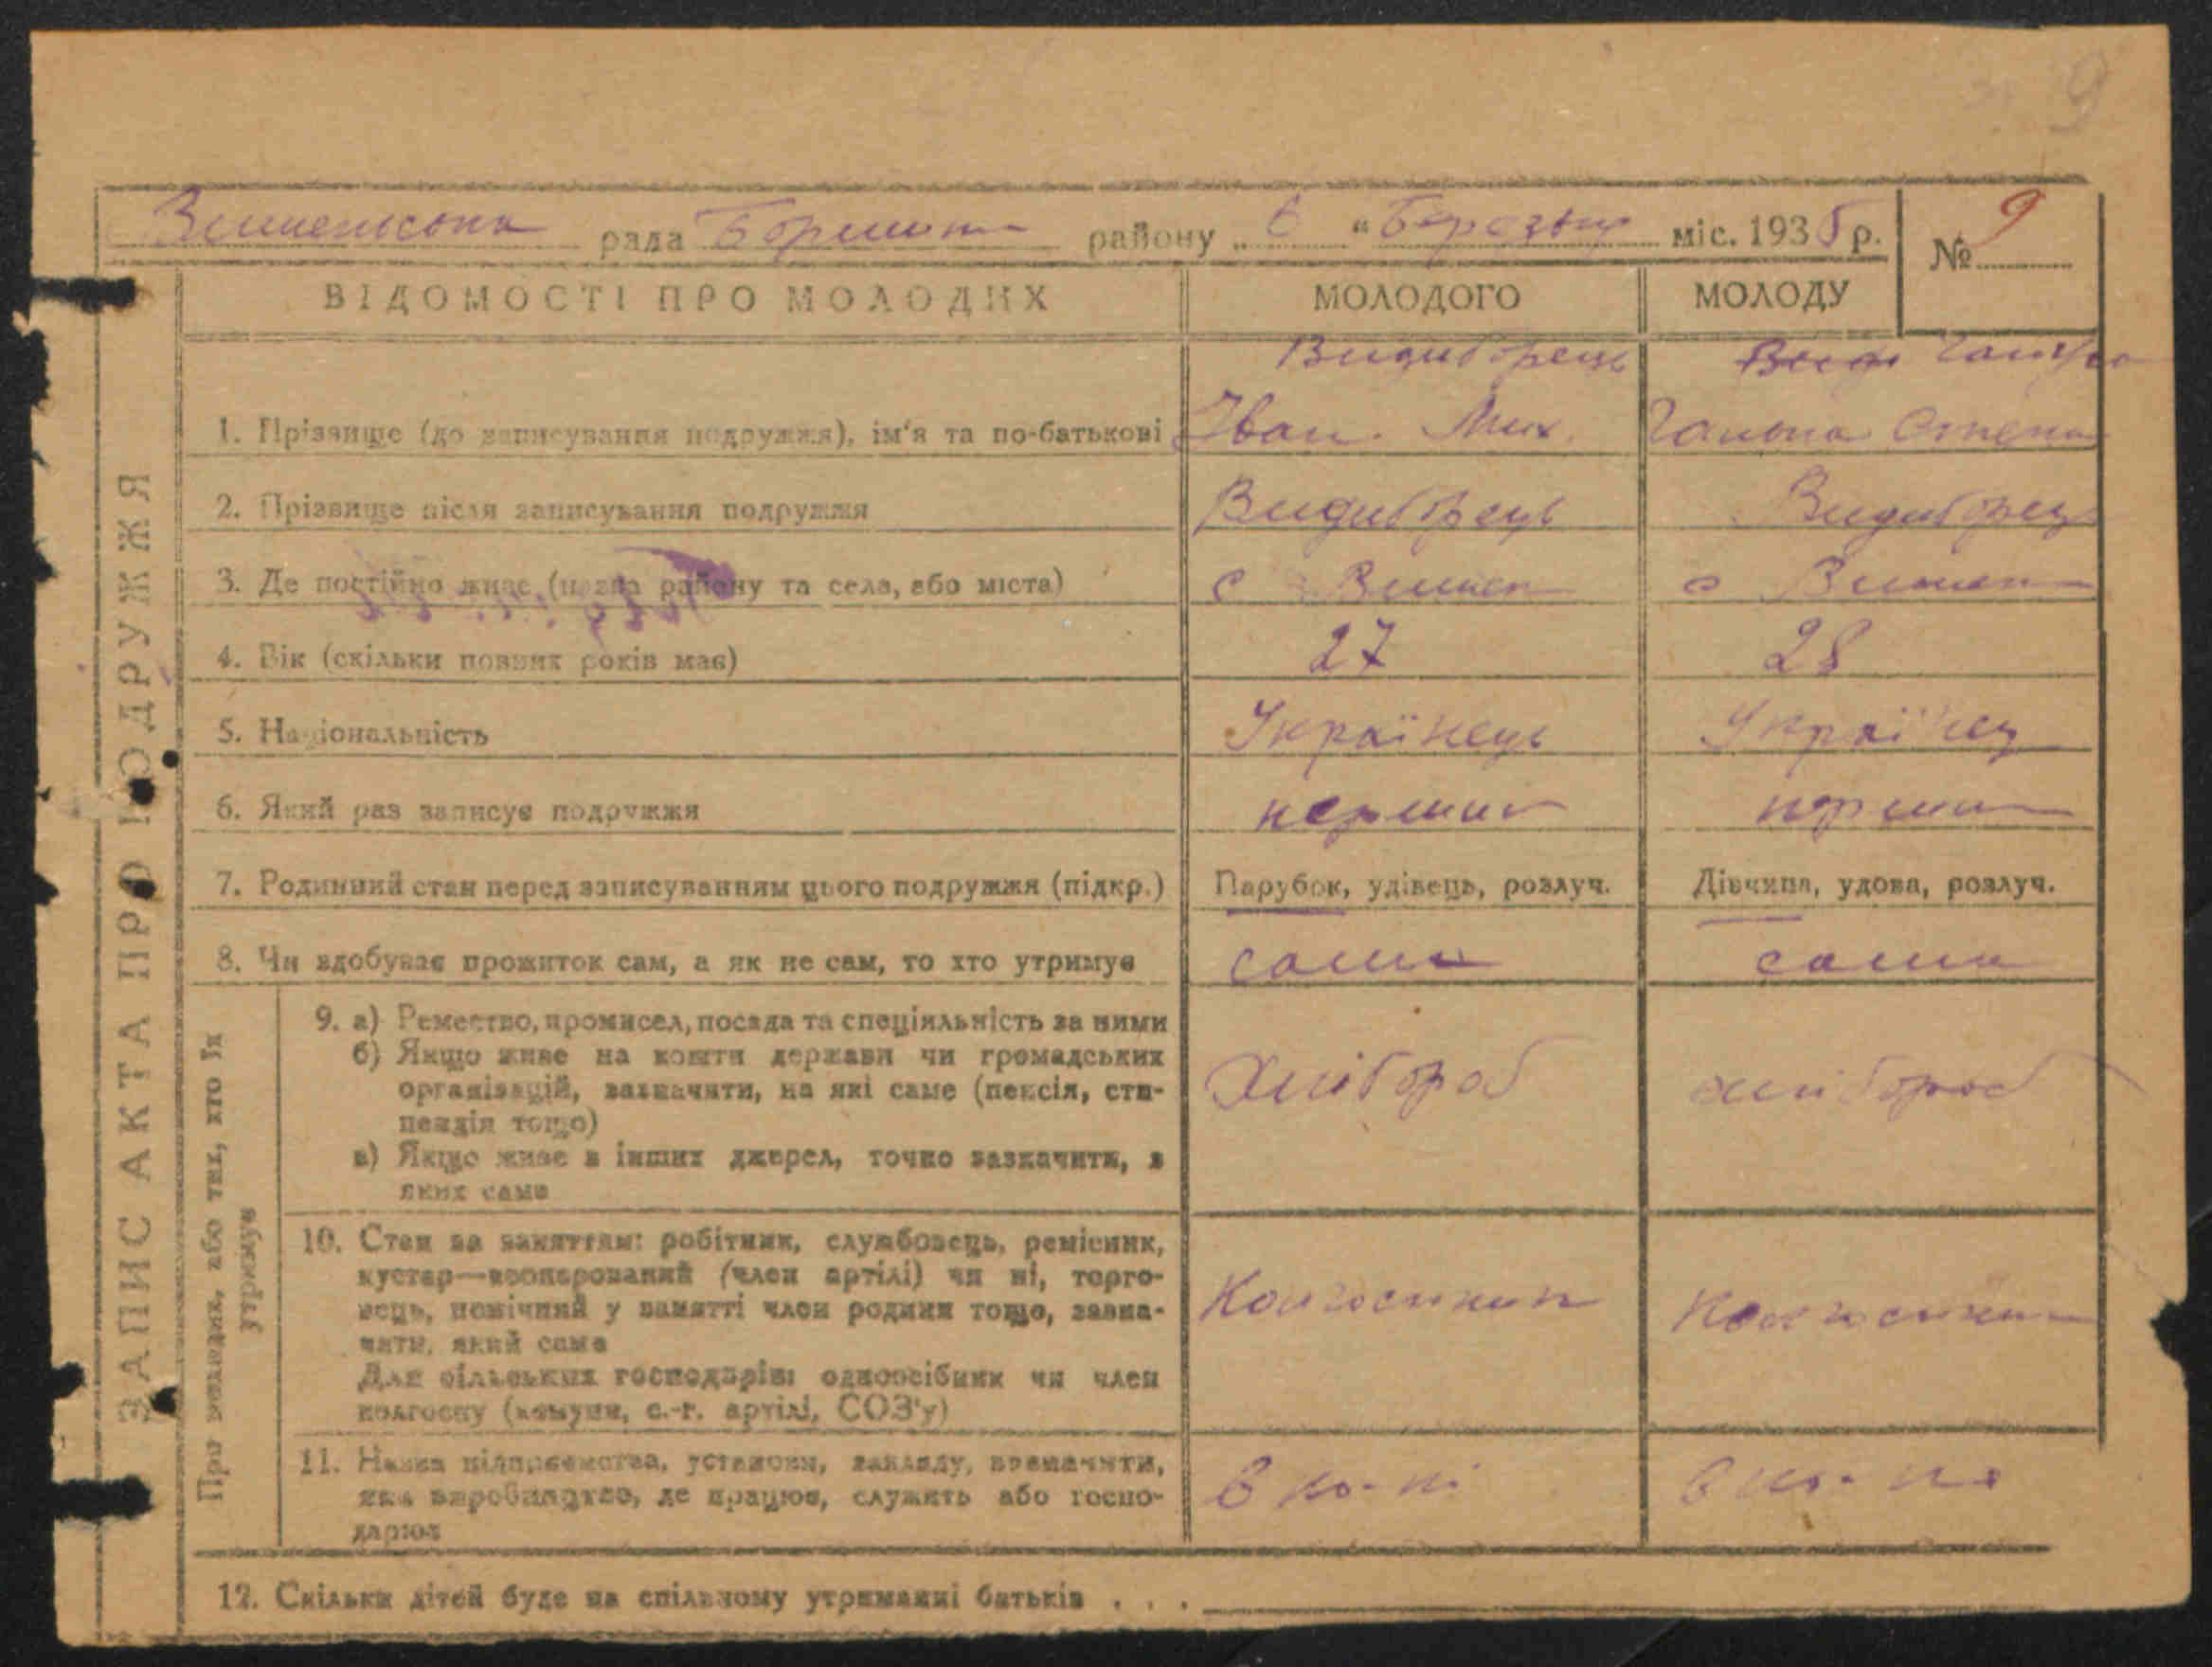 9
рада району „ 6 “ Березня міс. 1935 р.
№ 9
ЗАПИС АКТА ПРО ПОДРУЖЖЯ
ВІДОМОСТІ ПРО МОЛОДИХ МОЛОДОГО МОЛОДУ
Видиборець
1. Прізвище (до записування подружжя), ім'я та по-батькові Іван Мих. Степан
2. Прізвище після записування подружжя Видиборець Видиборець
3. Де постійно живе (назва району та села, або міста) с с
4. Вік (скільки повних років має) 27 28
5. Національність Українець Українец
6. Який раз записує подружжя перший перший
7. Родинний стан перед записуванням цього подружжя (підкр.) Парубок, удівець, розлуч. Дівчина, удова, розлуч.
8. Чи здобуває прожиток сам, а як не сам, то хто утримує сами сами
Про молодих, або тих, хто їх
утримує
9. а) Ремество, промисел, посада та спеціяльність за ними
б) Якщо живе на кошти держави чи громадських
організацій, зазначити, на які саме (пенсія, сти-
пендія тощо)
в) Якщо живе з інших джерел, точно зазначити, з
яких саме
Хлібороб хлібороб
10. Стан за заняттям: робітник, службовець, ремісник,
кустар—кооперований (член артілі) чи ні, торго-
вець, помічний у занятті член родини тощо, зазна-
чити, який саме
Для сільських господарів: одноосібник чи член
колгоспу (комуни, с.-г. артілі, СОЗ'у)
Колгоспник Колгоспник
11. Назва підприємства, установи, закладу, зазначити,
яке виробництво, де працює, служить або госпо-
дарює
12. Скільки дітей буде на спільному утриманні батьків . . .